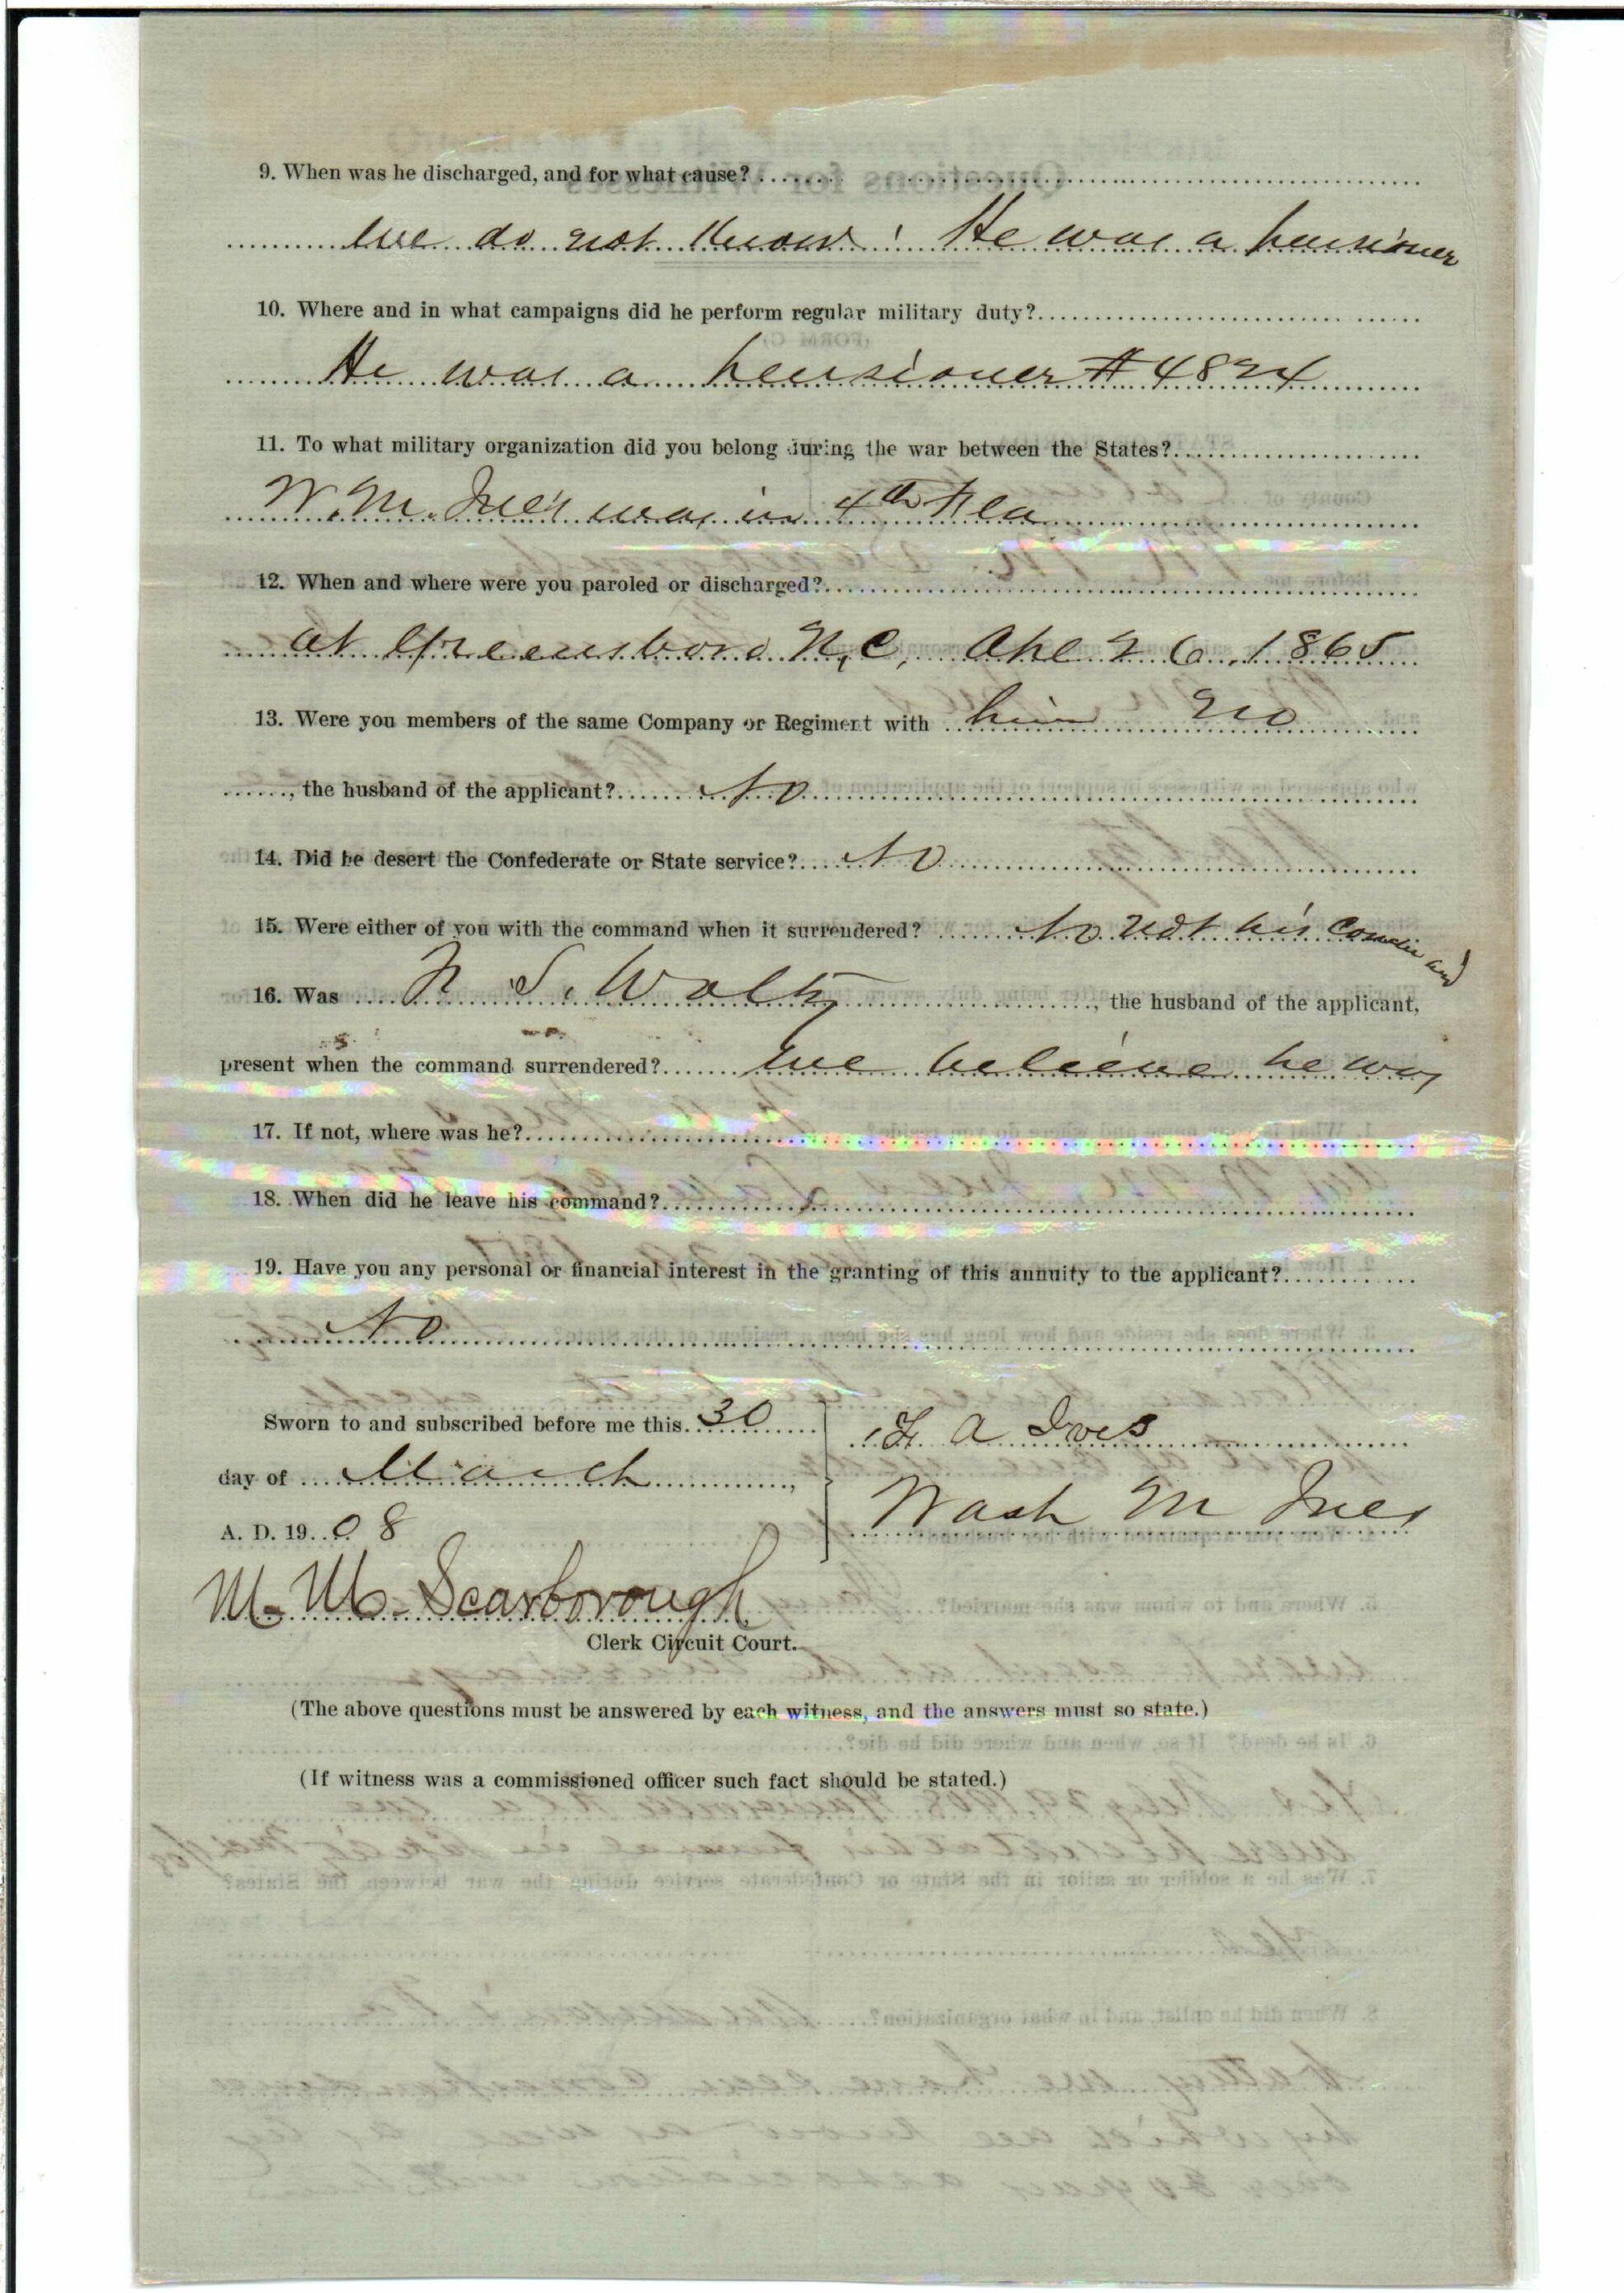 9. When was he discharged, and for what cause?
We do not know: He was a pensioner
10. Where and in what campaigns did he perform regular military duty?
He was a pensioner #4824
11. To what military organization did you belong during the war between the States?
W. M. Ives was in 4th Fla
12. When and where were you paroled or discharged?
at Greensboro N,C, Apl 26, 1865
13. Were you members of the same Company or Regiment with him No
, the husband of the applicant? No
14. Did he desert the Confederate or State service? No
15. Were either of you with the command when it surrendered? No not his command
16. Was S. Wolty, the husband of the applicant,
present when the command surrendered? We believe he was
17. If not, where was he?
18. When did he leave his command?
19. Have you any personal or financial interest in the granting of this annuity to the applicant?
No
Sworn to and subscribed before me this 30
day of March,
A. D. 1908
A Ives
Wash M Ives
M. M. Scarborough
Clerk Circuit Court.
(The above questions must be answered by each witness, and the answers must so state.)
(If witness was a commissioned officer such fact should be stated.)